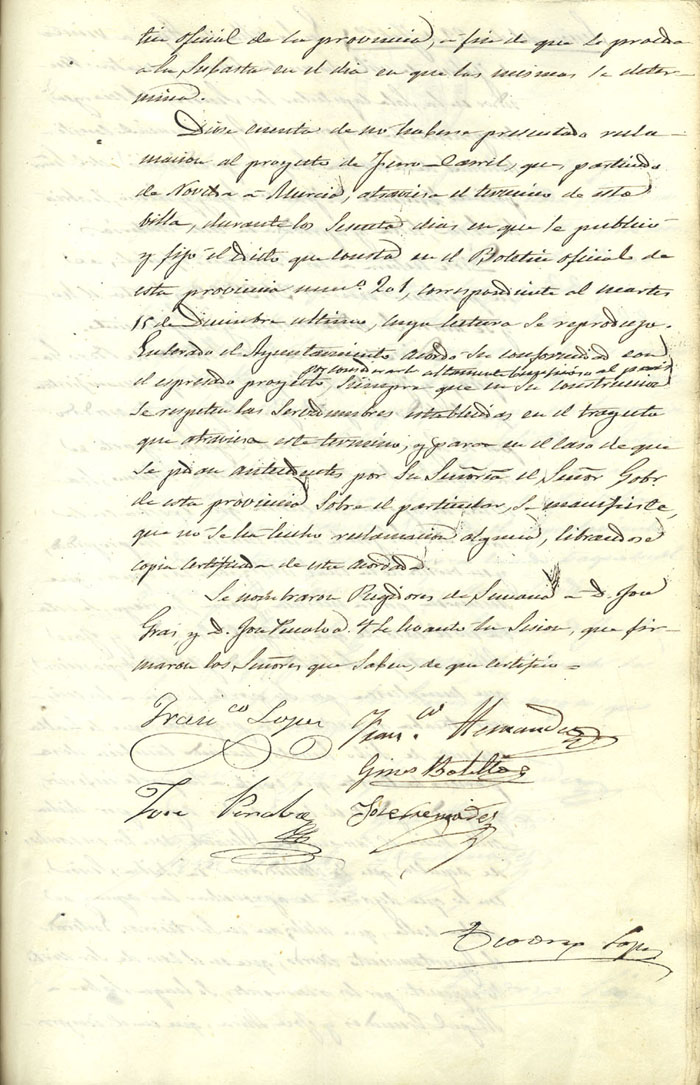 tin oficial de la provincia, a fin de que se proceda
a la Subasta en el dia en que las mismas se deter-
mina.
Diose cuenta de no haberse presentado recla-
macion al proyecto de Ferro-Carril, que, partiendo
de Novelda a Murcia, atraviesa el termino de esta
Villa, durante los Sesenta dias en que se publicó
y fijó el Edicto que consta en el Boletin oficial de
esta provincia num.º 201, correspondiente al martes
15 de Diciembre ultimo, cuya lectura se reprodujo.
Enterado el Ayuntamiento acordó su conformidad con
por considerarle altamente beneficioso al pais
el espresado proyecto, siempre que en su construccion
se respeten las Servidumbres establecidas en el trayecto
que atraviesa este termino; y para en el caso de que
se pidan antecedentes por Su Señoria el Señor Gobr
de esta provincia sobre el particular, se manifieste,
que no se ha hecho reclamacion alguna, librandose
copia certificada de este acordado.
Se nombraron Regidores de Semana a D. José
Gras, y D. José Penalva. Y se levantó la Sesion, que fir-
maron los Señores que Saben, de que certifico =
Fran.co Lopez Fran.co Hernandez
Gines Botella
Jose Penalva Jose
Lopez